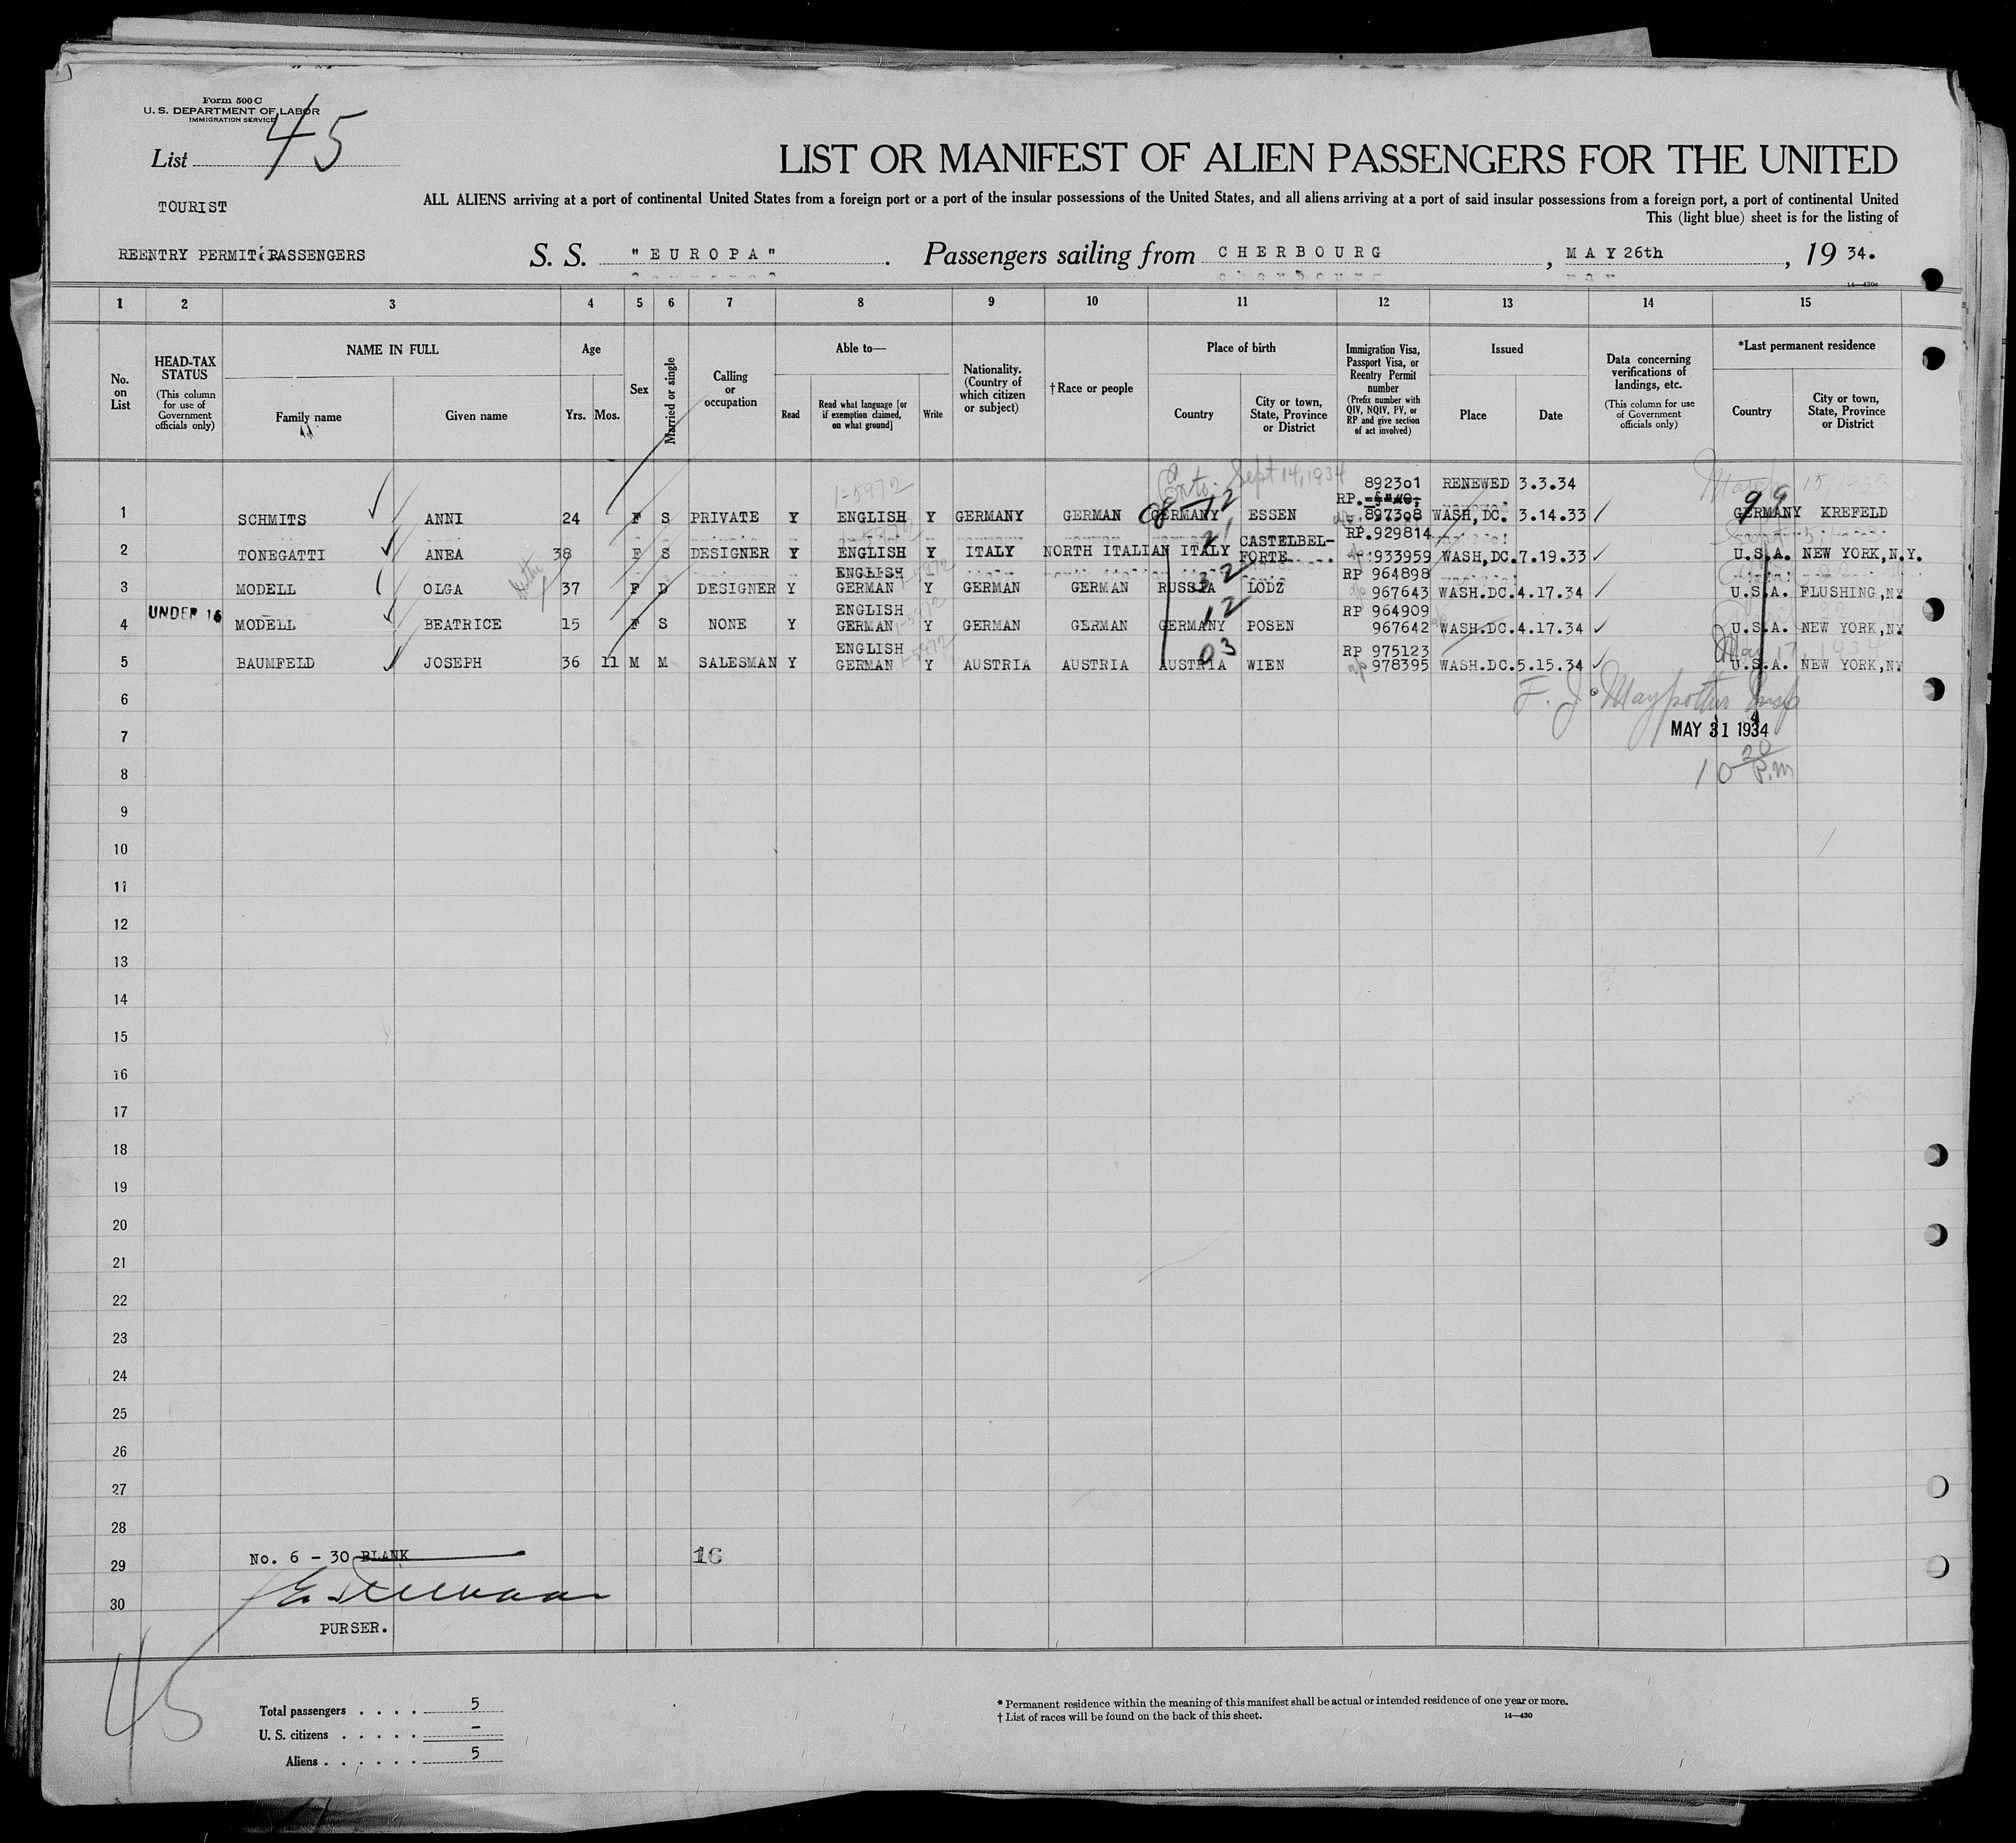 Form 500 C
U. S. DEPARTMENT OF LABOR
IMMIGRATION SERVICE
List 45
LIST OR MANIFEST OF ALIEN PASSENGERS FOR THE UNITED
TOURIST
ALL ALIENS arriving at a port of continental United States from a foreign port or a port of the insular possessions of the United States, and all aliens arriving at a port of said insular possessions from a foreign port, a port of continental United
This (light blue) sheet is for the listing of
REENTRY PERMIT PASSENGERS S. S. "EUROPA". Passengers sailing from CHERBOURG, MAY 26th, 19 34.
14—430c
1 2 3 4 5 6 7 8 9 10 11 12 13 14 15
No. on List
HEAD-TAX STATUS (This column for use of Government officials only)
NAME IN FULL Family name Given name
Age Yrs. Mos.
Sex
Married or single
Calling or occupation
Able to— Read Read what language [or if exemption claimed, on what ground] Write
Nationality. (Country of which citizen or subject)
†Race or people
Place of birth Country City or town, State, Province or District
Immigration Visa, Passport Visa, or Reentry Permit number (Prefix number with QIV, NQIV, PV, or RP and give section of act involved)
Issued Place Date
Data concerning verifications of landings, etc. (This column for use of Government officials only)
*Last permanent residence Country City or town, State, Province or District
Sept 14, 1934
1-5972 892301 RENEWED 3.3.34 March 15, 1933
1 SCHMITS ANNI 24 F S PRIVATE Y ENGLISH Y GERMANY GERMAN GERMANY ESSEN RP. 897308 WASH,DC. 3.14.33 GERMANY KREFELD
12 99
CASTELBEL- RP.929814
2 TONEGATTI ANEA 38 F S DESIGNER Y ENGLISH Y ITALY NORTH ITALIAN ITALY FORTE 933959 WASH,DC. 7.19.33 U.S.A. NEW YORK,N.Y.
ENGLISH 1-5972 RP 964898
3 MODELL OLGA 37 F D DESIGNER Y GERMAN Y GERMAN GERMAN RUSSIA LODZ 967643 WASH.DC. 4.17.34 U.S.A. FLUSHING,NY
32
UNDER 16 ENGLISH 1-5972 RP 964909
4 MODELL BEATRICE 15 F S NONE Y GERMAN Y GERMAN GERMAN GERMANY POSEN 967642 WASH.DC. 4.17.34 U.S.A. NEW YORK,NY
12
ENGLISH 1-5972 RP 975123 May 17, 1934
5 BAUMFELD JOSEPH 36 11 M M SALESMAN Y GERMAN Y AUSTRIA AUSTRIA AUSTRIA WIEN 978395 WASH.DC. 5.15.34 U.S.A. NEW YORK,NY
03
6
F. J. Maypother Insp
7 MAY 31 1934
8 10 20 P.m
9
10
11
12
13
14
15
16
17
18
19
20
21
22
23
24
25
26
27
28
29 No. 6 - 30 BLANK 16
30
PURSER.
45
Total passengers . . . . 5
U. S. citizens . . . . . –
Aliens . . . . . . 5
* Permanent residence within the meaning of this manifest shall be actual or intended residence of one year or more.
† List of races will be found on the back of this sheet. 14—430